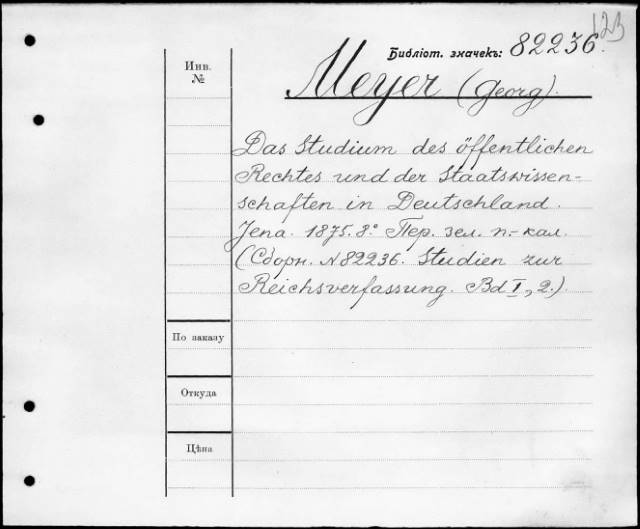 123
Библіот. значекъ: 82236.
Инв.
№
Meyer (Georg).
Das Studium des öffentlichen
Rechtes und der Staatswissen-
schaften in Deutschland.
Jena. 1875. 8.° Пер. зел. п.-кал.
(Сборн. №82236. Studien zur
Reichsverfassung. Bd I, 2.)
По заказу
Откуда
Цѣна